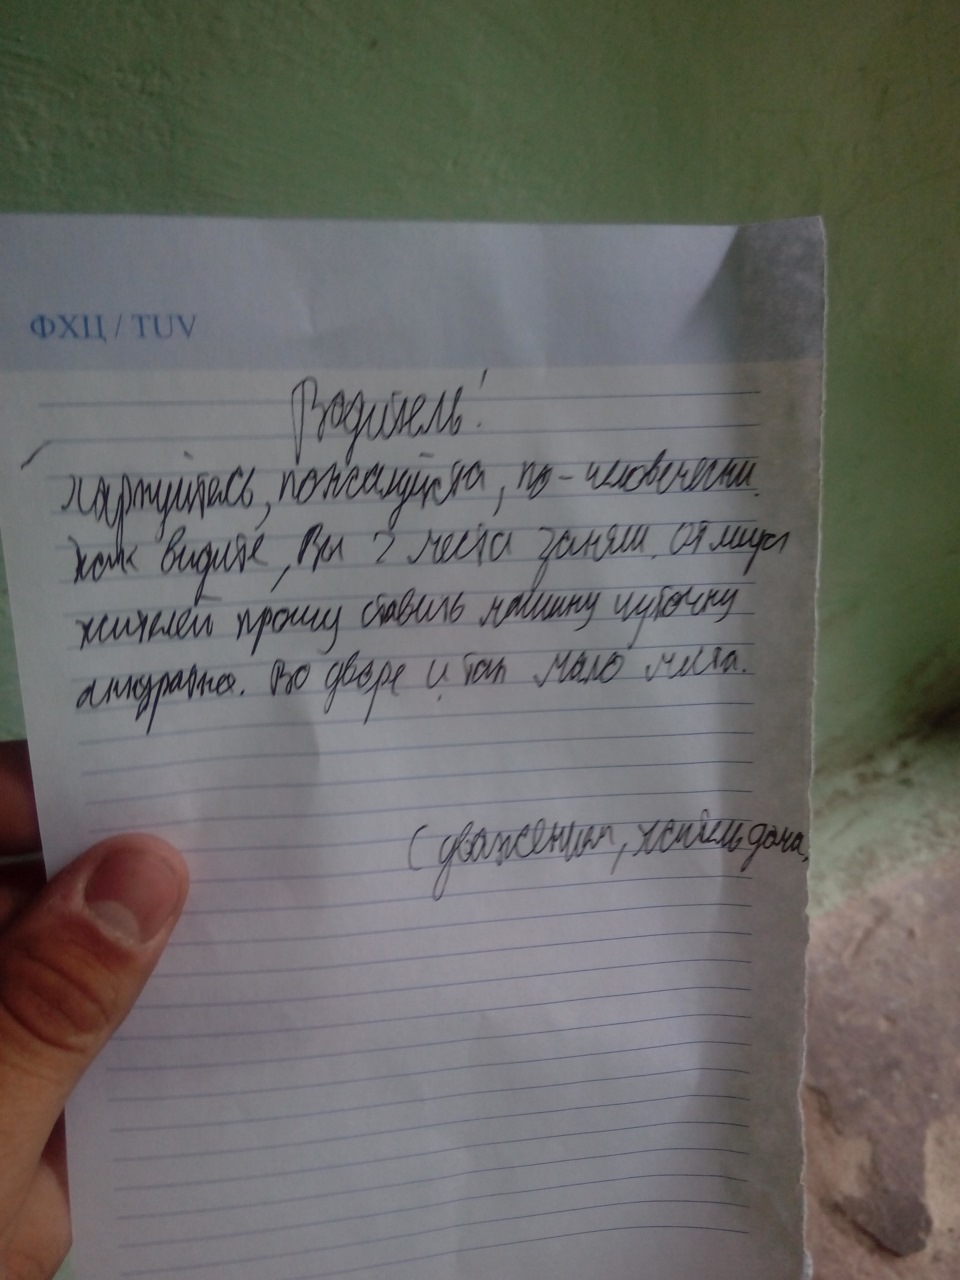 ФХЦ / TUV
Водитель!
Паркуйтесь, пожалуйста, по-человечески.
Как видите, Вы 2 места заняли. От лица
жителей прошу ставить машину чуточку
аккуратно. Во дворе и так мало места.
С уважением, житель дома,